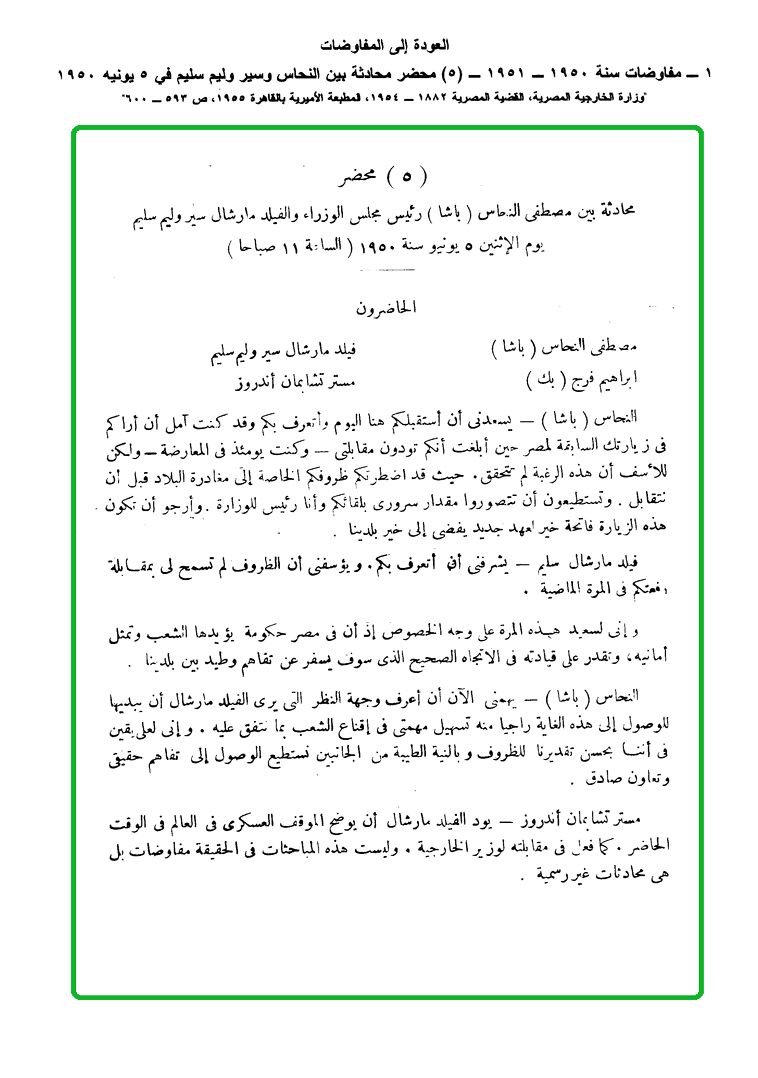 العودة إلى المفاوضات
١ ــ مفاوضات سنة ١٩٥٠ ــ ١٩٥١ ــ (٥) محضر محادثة بين النحاس وسير وليم سليم في ٥ يونيه ١٩٥٠
"وزارة الخارجية المصرية، القضية المصرية ١٨٨٢ ــ ١٩٥٤، المطبعة الأميرية بالقاهرة ١٩٥٥، ص ٥٩٣ ــ ٦٠٠"
( ٥ ) محضر
محادثة بين مصطفى النحاس ( باشا ) رئيس مجلس الوزراء والفيلد مارشال سير وليم سليم
يوم الإثنين ٥ يونيو سنة ١٩٥٠ ( الساعة ١١ صباحا )
الحاضرون
مصطفى النحاس ( باشا ) فيلد مارشال سير وليم سليم
ابراهيم فرج ( بك ) مستر تشابمان أندروز
النحاس ( باشا ) — يسعدنى أن أستقبلكم هنا اليوم وأتعرف بكم وقد كنت آمل أن أراكم
فى زيارتك السابقة لمصر حين أبلغت أنكم تودون مقابلتى — وكنت يومئذ فى المعارضة — ولكن
للأسف أن هذه الرغبة لم تتحقق. حيث قد اضطرتكم ظروفكم الخاصة إلى مغادرة البلاد قبل أن
نتقابل . وتستطيعون أن تتصوروا مقدار سرورى بلقائكم وأنا رئيس للوزارة . وأرجو أن تكون
هذه الزيارة فاتحة خير لعهد جديد يفضى إلى خير بلدينا .
فيلد مارشال سليم — يشرفنى أن أتعرف بكم. ويؤسفنى أن الظروف لم تسمح لى بمقابلة
رفعتكم فى المرة الماضية .
وإنى لسعيد هذه المرة على وجه الخصوص إذ أن فى مصر حكومة يؤيدها الشعب وتمثل
أمانيه، وتقدر على قيادته فى الاتجاه الصحيح الذى سوف يسفر عن تفاهم وطيد بين بلدينا .
النحاس ( باشا ) — يهمنى الآن أن أعرف وجهة النظر التى يرى الفيلد مارشال أن يبديها
للوصول إلى هذه الغاية راجيا منه تسهيل مهمتى فى إقناع الشعب بما نتفق عليه . وإنى لعلى يقين
فى أننا بحسن تقديرنا للظروف وبالنية الطيبة من الجانبين نستطيع الوصول إلى تفاهم حقيقى
وتعاون صادق .
مستر تشابمان أندروز — يود الفيلد مارشال أن يوضح الموقف العسكرى فى العالم فى الوقت
الحاضر . كما فعل فى مقابلته لوزير الخارجية . وليست هذه المباحثات فى الحقيقة مفاوضات بل
هى محادثات غير رسمية .